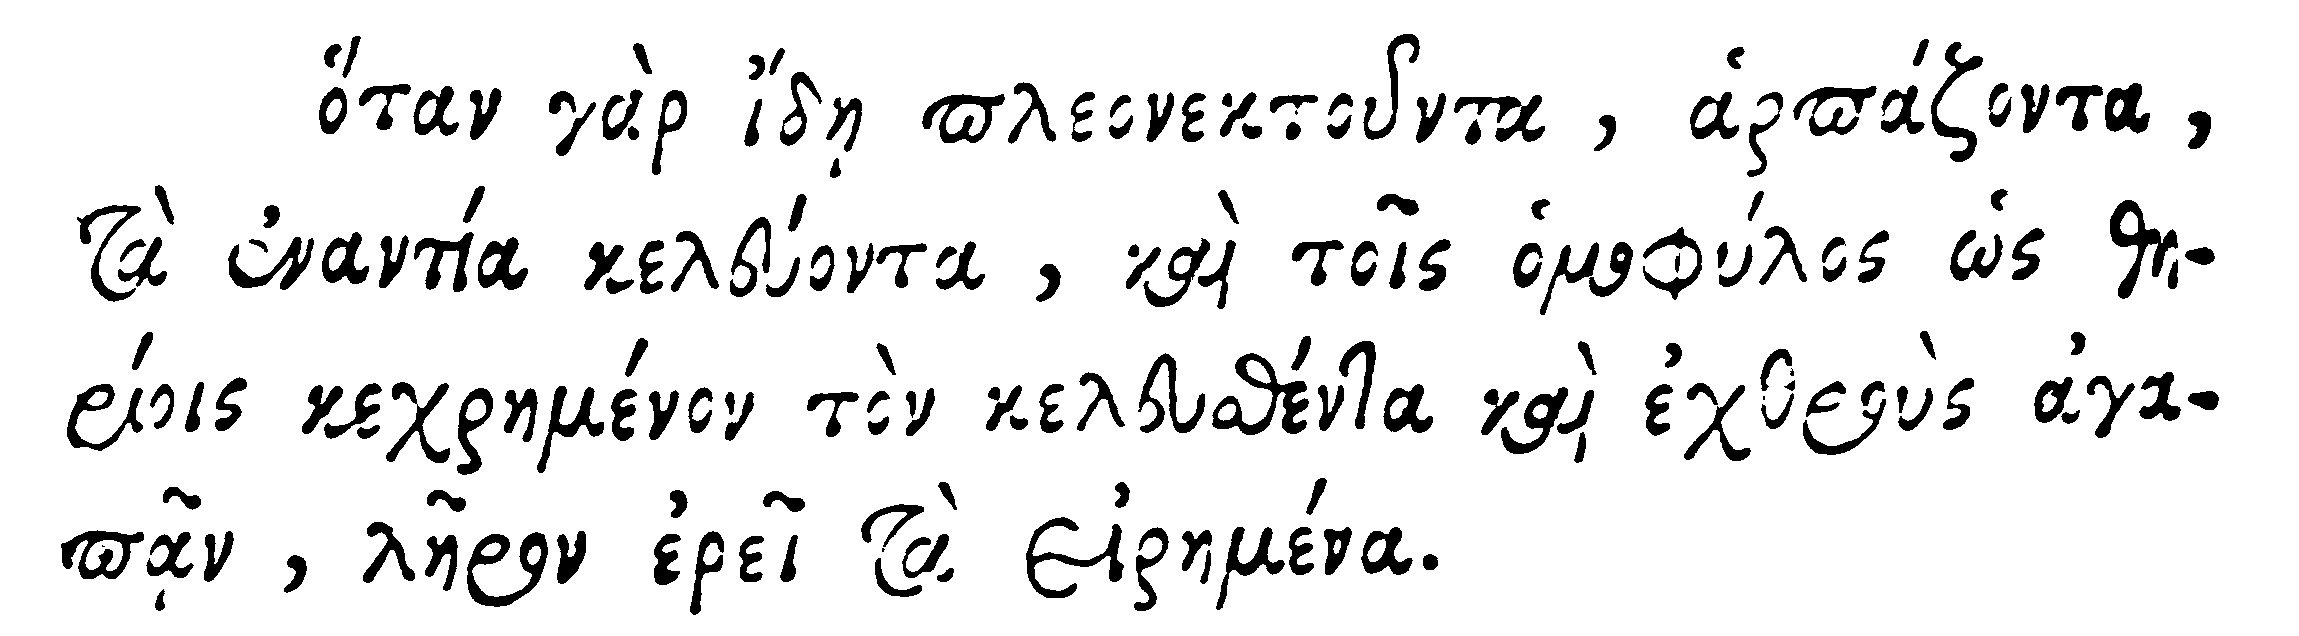 ὅταν γὰρ ἴδῃ πλεονεκτοῦντα, ἁρπάζοντα,
τὰ ἐναντία κελεύοντα, καὶ τοῖς ὁμοφύλος ὡς θη-
ρίοις κεχρημένον τὸν κελευσθέντα καὶ ἐχθροὺς ἀγα-
πᾷν, λῆρον ἐρεῖ τὰ εἰρημένα.